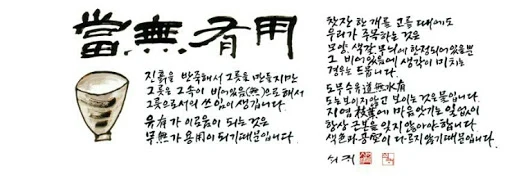 當無有用
진흙을 반죽해서 그릇을 만들지만
그릇은 그 속이 비어있음(無)으로 해서
그릇으로서의 쓰임이 생깁니다.
유有가 이로움이 되는 것은
무無가 용用이 되기 때문입니다.
찻잔 한 개를 고를 때에도
우리가 주목하는 것은
모양, 색깔, 무늬에 한정되어 있을뿐
그 비어있음에 생각이 미치는
경우는 드뭅니다.
도무수유道無水有
도는 보이지 않고 보이는 것은 물입니다.
지엽枝葉에 마음 앗기는 일 없이
항상 근본을 잊지 않아야 합니다.
색色과 공空이 다르지 않기 때문입니다.